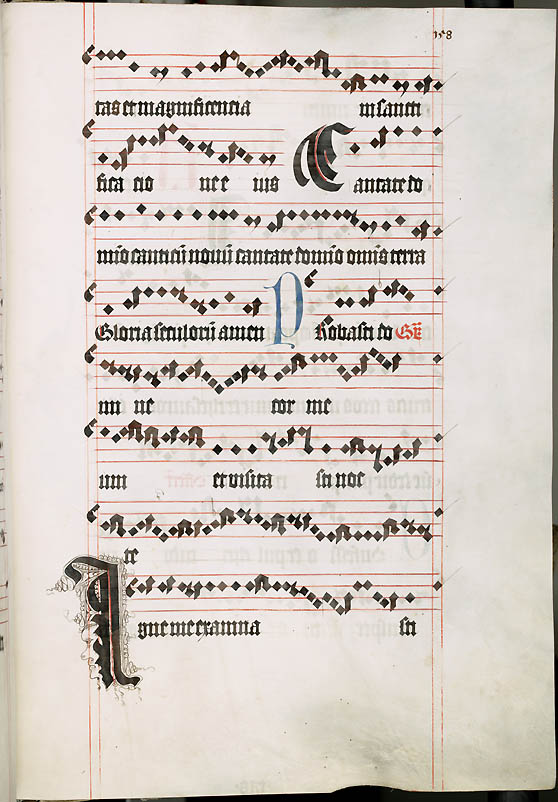 158
tas et magnificencia in sancti
fica cio ne e ius Cantate do
mīo canticū novū cantate domīo omīs terra
Gloria seculorū amen Probasti do Gr̄
mi ne cor me
um et visita sti noc
te
Igne me examina sti